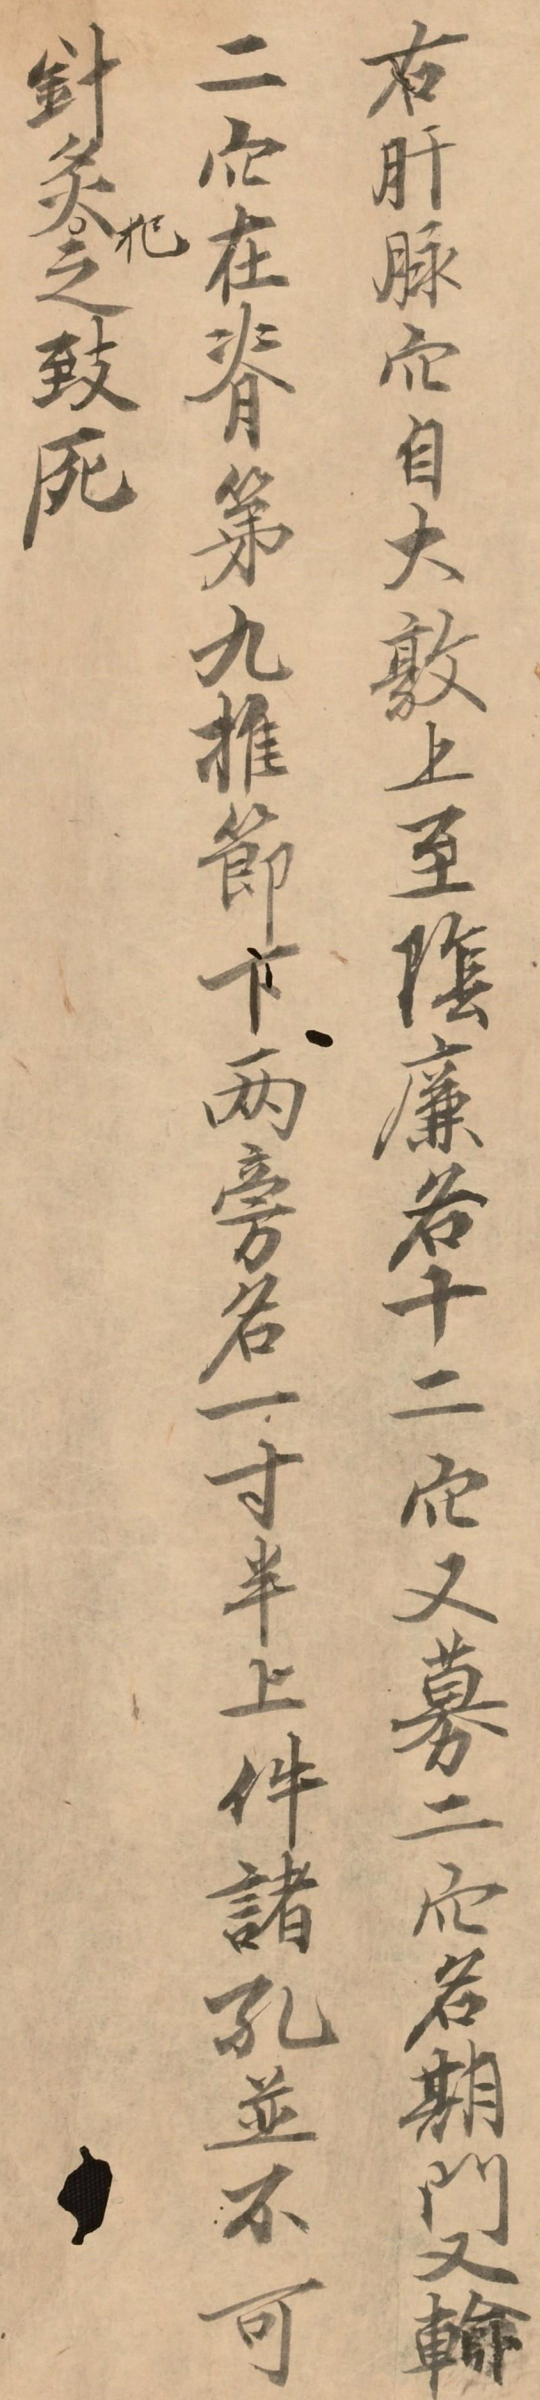 右肝脉穴自大敦上至陰廉各十二穴又募二穴名期門又輸
二穴在脊第九推節下兩旁各一寸半上件諸孔並不可
針灸犯之致死